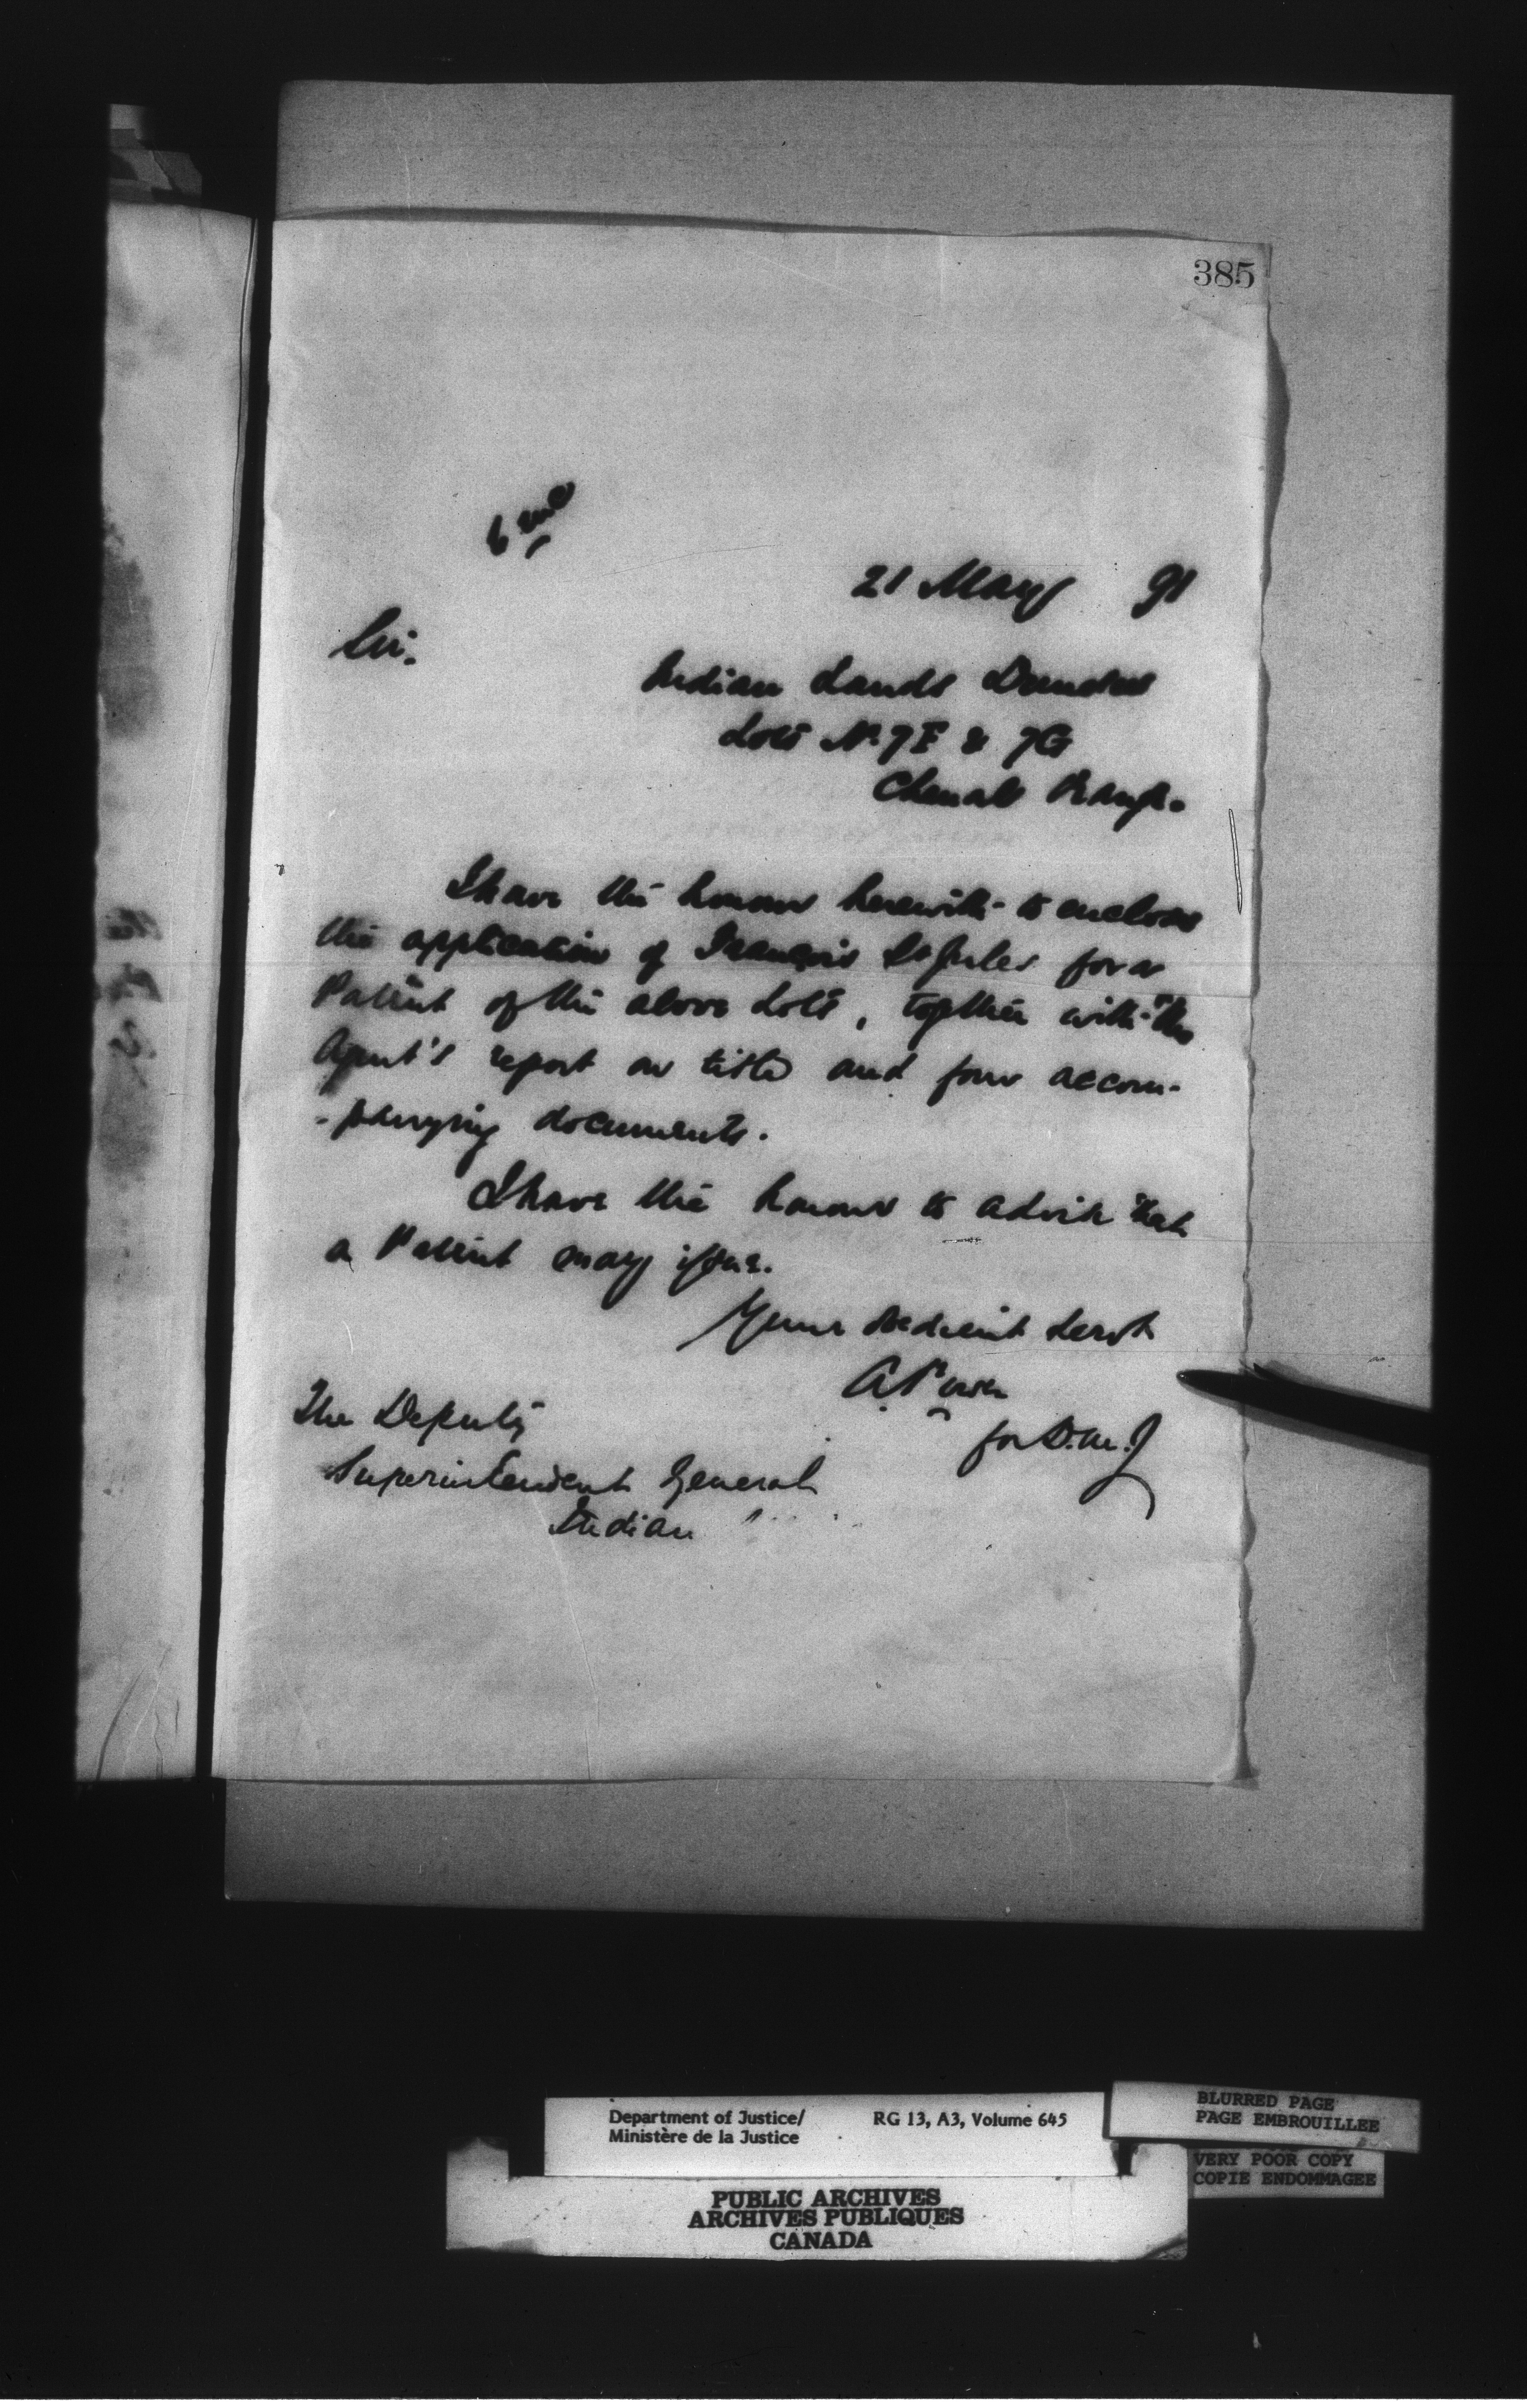 385
6 enc
21 May 91
Sir.
Indian Lands Dundee
Lots No 7F & 7G
Chenail Range.
I have the honour herewith to enclose
the application of François St Jules for a
Patent of the above Lots, together with the
Agent's report on title and four accom-
-panying documents.
I have the honour to advise that
a Patent may issue.
Your obedient Servt
A Power
for D.M.J
The Deputy
Superintendent General
Indian
Department of Justice/
Ministère de la Justice
RG 13, A3, Volume 645
BLURRED PAGE
PAGE EMBROUILLEE
VERY POOR COPY
COPIE ENDOMMAGEE
PUBLIC ARCHIVES
ARCHIVES PUBLIQUES
CANADA